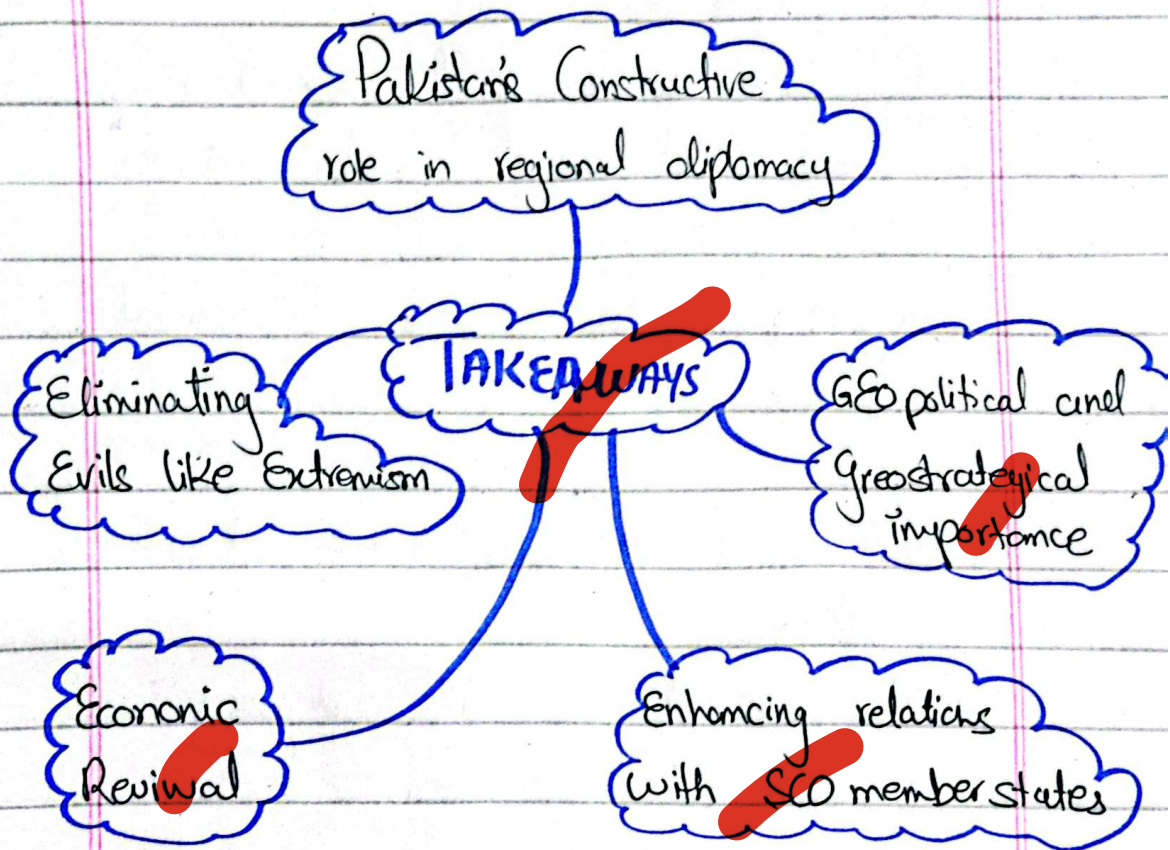 Pakistan's Constructive
role in regional diplomacy
TAKEAWAYS
Eliminating
Evils like Extremism
GEopolitical and
Greostrategical
importance
Econonic
Reviwal
Enhancing relations
with SCO member states